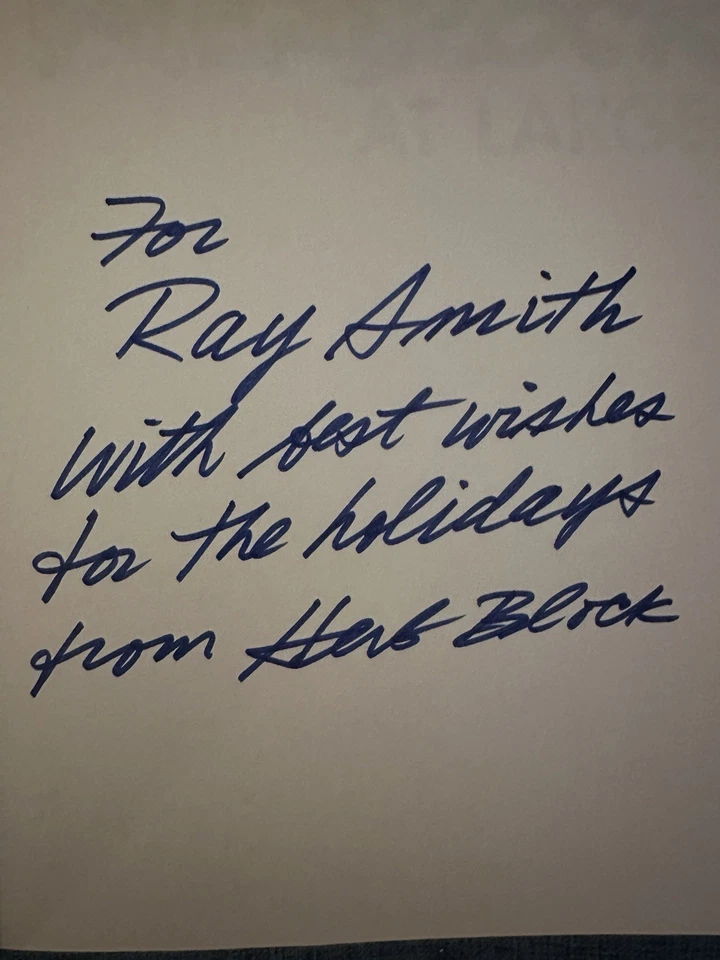 AT LARGE
For
Ray Smith
with best wishes
for the holidays
from Herb Block